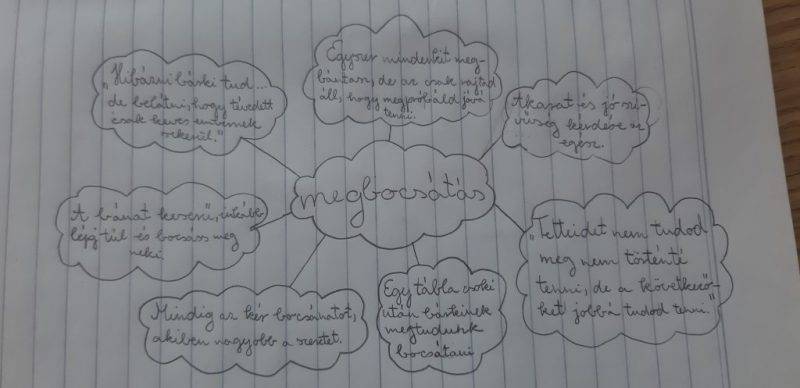 „Hibázni bárki tud...
de belátni, hogy tévedett
csak kevés embernek
sikerül."
Egyszer mindenkit meg-
bántasz, de az csak rajtad
áll, hogy megpróbáld jóvá
tenni.
Akarat és jó szí-
vűség kérdése az
egész.
megbocsátás
A bánat keserű, inkább
lépj túl és bocsáss meg
neki.
„Tetteidet nem tudod
meg nem történté
tenni, de a következő-
ket jobbá tudod tenni."
Mindig az kér bocsánatot,
akiben nagyobb a szeretet.
Egy tábla csoki
után bárkinek
megtudunk
bocsátani